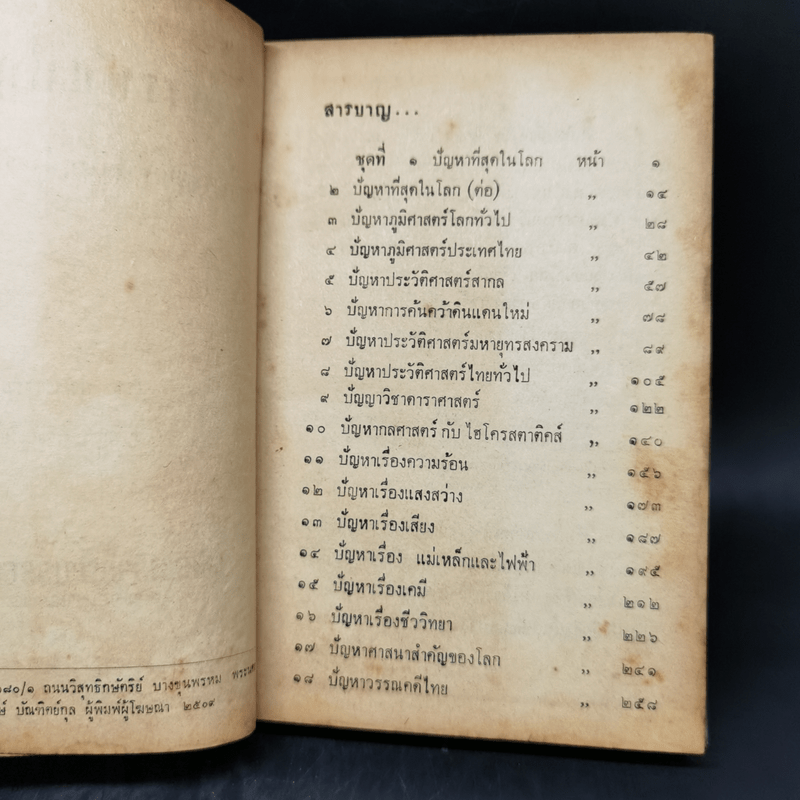 สารบาญ...
ชุดที่ ๑ ปัญหาที่สุดในโลก หน้า ๑
๒ ปัญหาที่สุดในโลก (ต่อ) ,, ๑๔
๓ ปัญหาภูมิศาสตร์โลกทั่วไป ,, ๒๘
๔ ปัญหาภูมิศาสตร์ประเทศไทย ,, ๔๒
๕ ปัญหาประวัติศาสตร์สากล ,, ๕๗
๖ ปัญหาการค้นคว้าดินแดนใหม่ ,, ๗๘
๗ ปัญหาประวัติศาสตร์มหายุทธสงคราม ,, ๘๙
๘ ปัญหาประวัติศาสตร์ไทยทั่วไป ,, ๑๐๕
๙ ปัญญาวิชาดาราศาสตร์ ,, ๑๒๒
๑๐ ปัญหากลศาสตร์ กับ ไฮโดรสตาติคส์ ,, ๑๔๐
๑๑ ปัญหาเรื่องความร้อน ,, ๑๕๖
๑๒ ปัญหาเรื่องแสงสว่าง ,, ๑๗๓
๑๓ ปัญหาเรื่องเสียง ,, ๑๘๗
๑๔ ปัญหาเรื่อง แม่เหล็กและไฟฟ้า ,, ๑๙๕
๑๕ ปัญหาเรื่องเคมี ,, ๒๑๒
๑๖ ปัญหาเรื่องชีววิทยา ,, ๒๒๖
๑๗ ปัญหาศาสนาสำคัญของโลก ,, ๒๔๑
๑๘ ปัญหาวรรณคดีไทย ,, ๒๕๘
๐๘๐/๑ ถนนวิสุทธิกษัตริย์ บางขุนพรหม
บัณฑิตย์กุล ผู้พิมพ์ผู้โฆษณา ๒๕๐๙